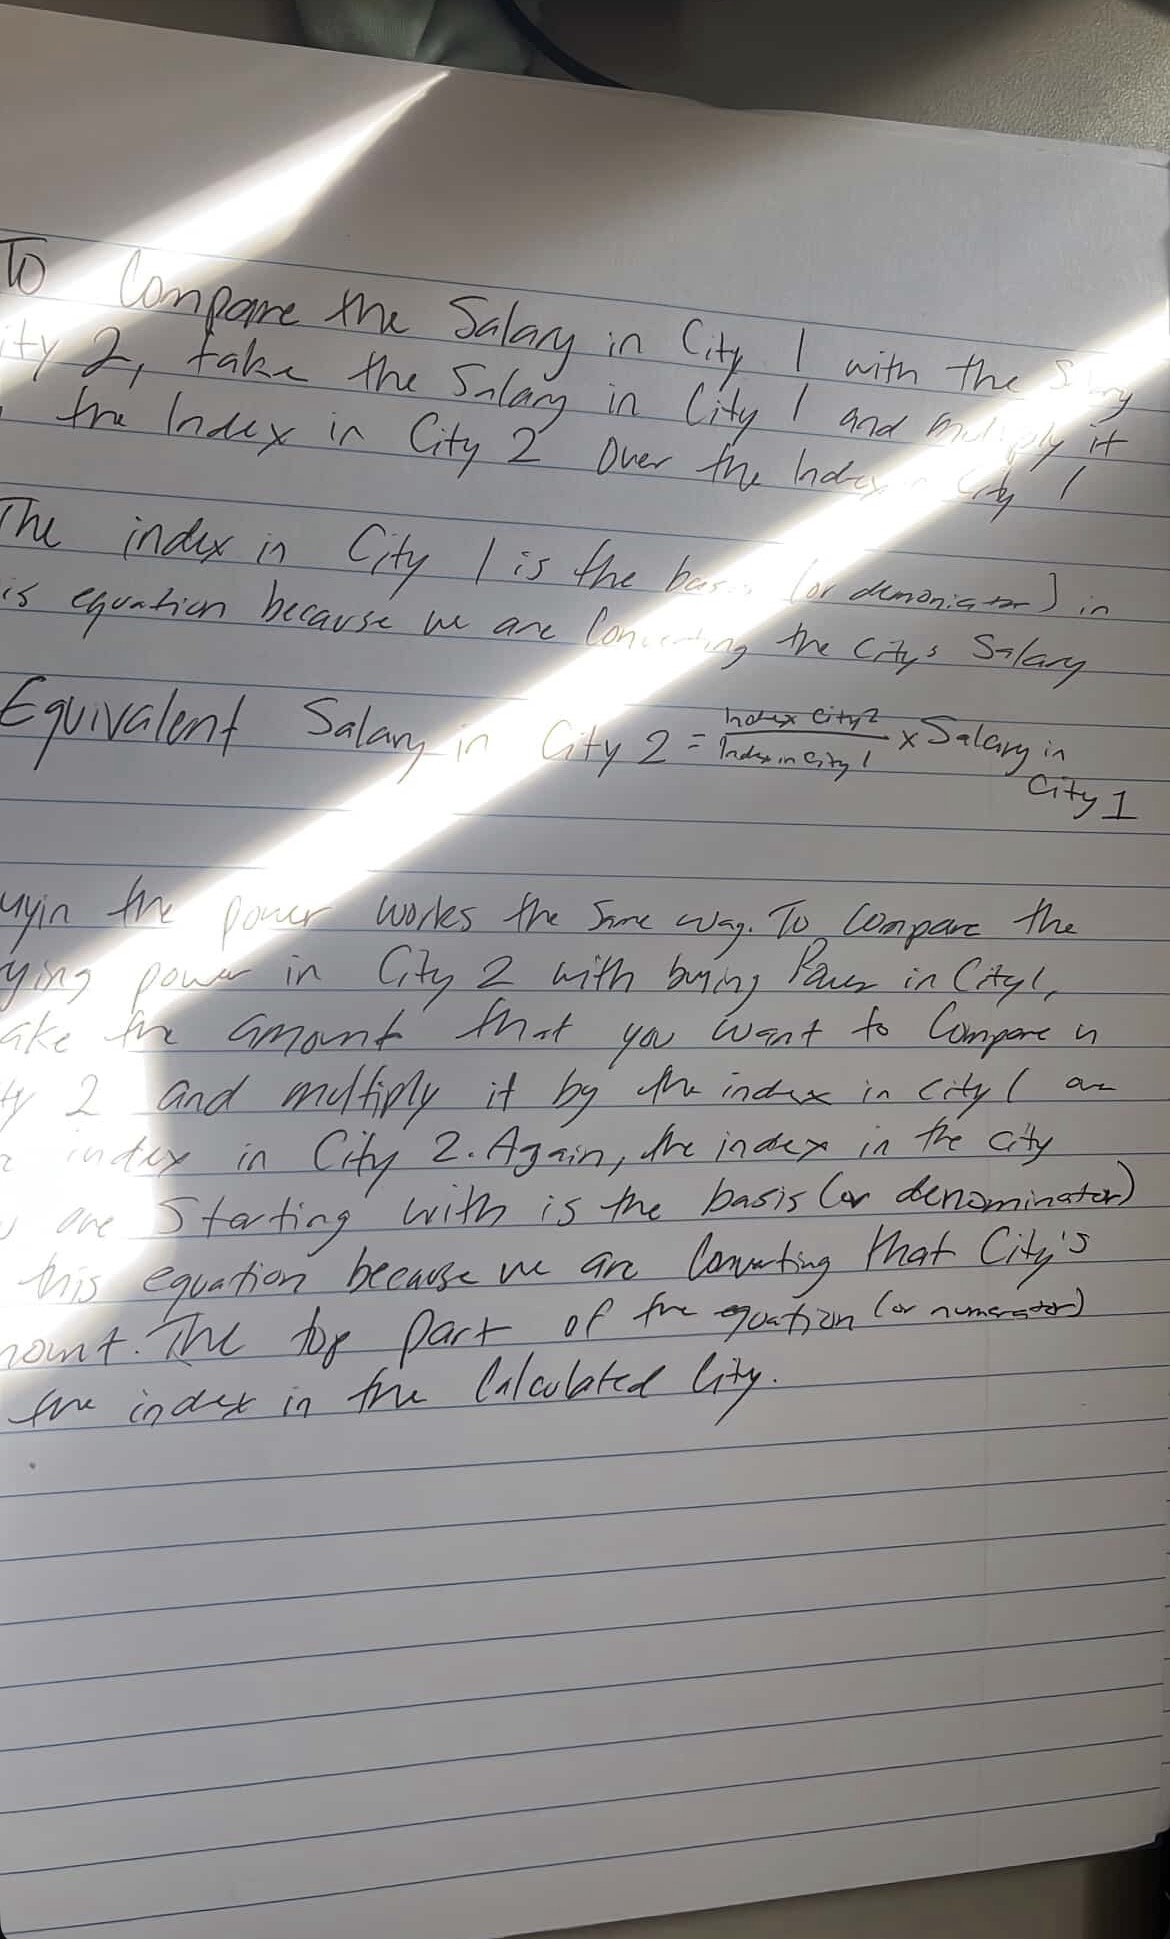 To Compare the Salary in City 1 with the
ity 2, take the Salary in City 1 and multiply it
the Index in City 2 Over the Index in City 1
The index in City 1 is the basis (or demoniator) in
is equation because we are Converting the City's Salary
Equivalent Salary in City 2 = Index City 2 / Index in City 1 x Salary in
City 1
uyin the power works the Same way. To Compare the
ying power in City 2 with buying Power in City 1,
ake the amount that you want to Compare in
ty 2 and multiply it by the index in city 1
index in City 2. Again, the index in the city
are Starting with is the basis (or denominator)
this equation because we are Converting that City's
mount. The top part of the equation (or numerator)
the index in the Calculated City.